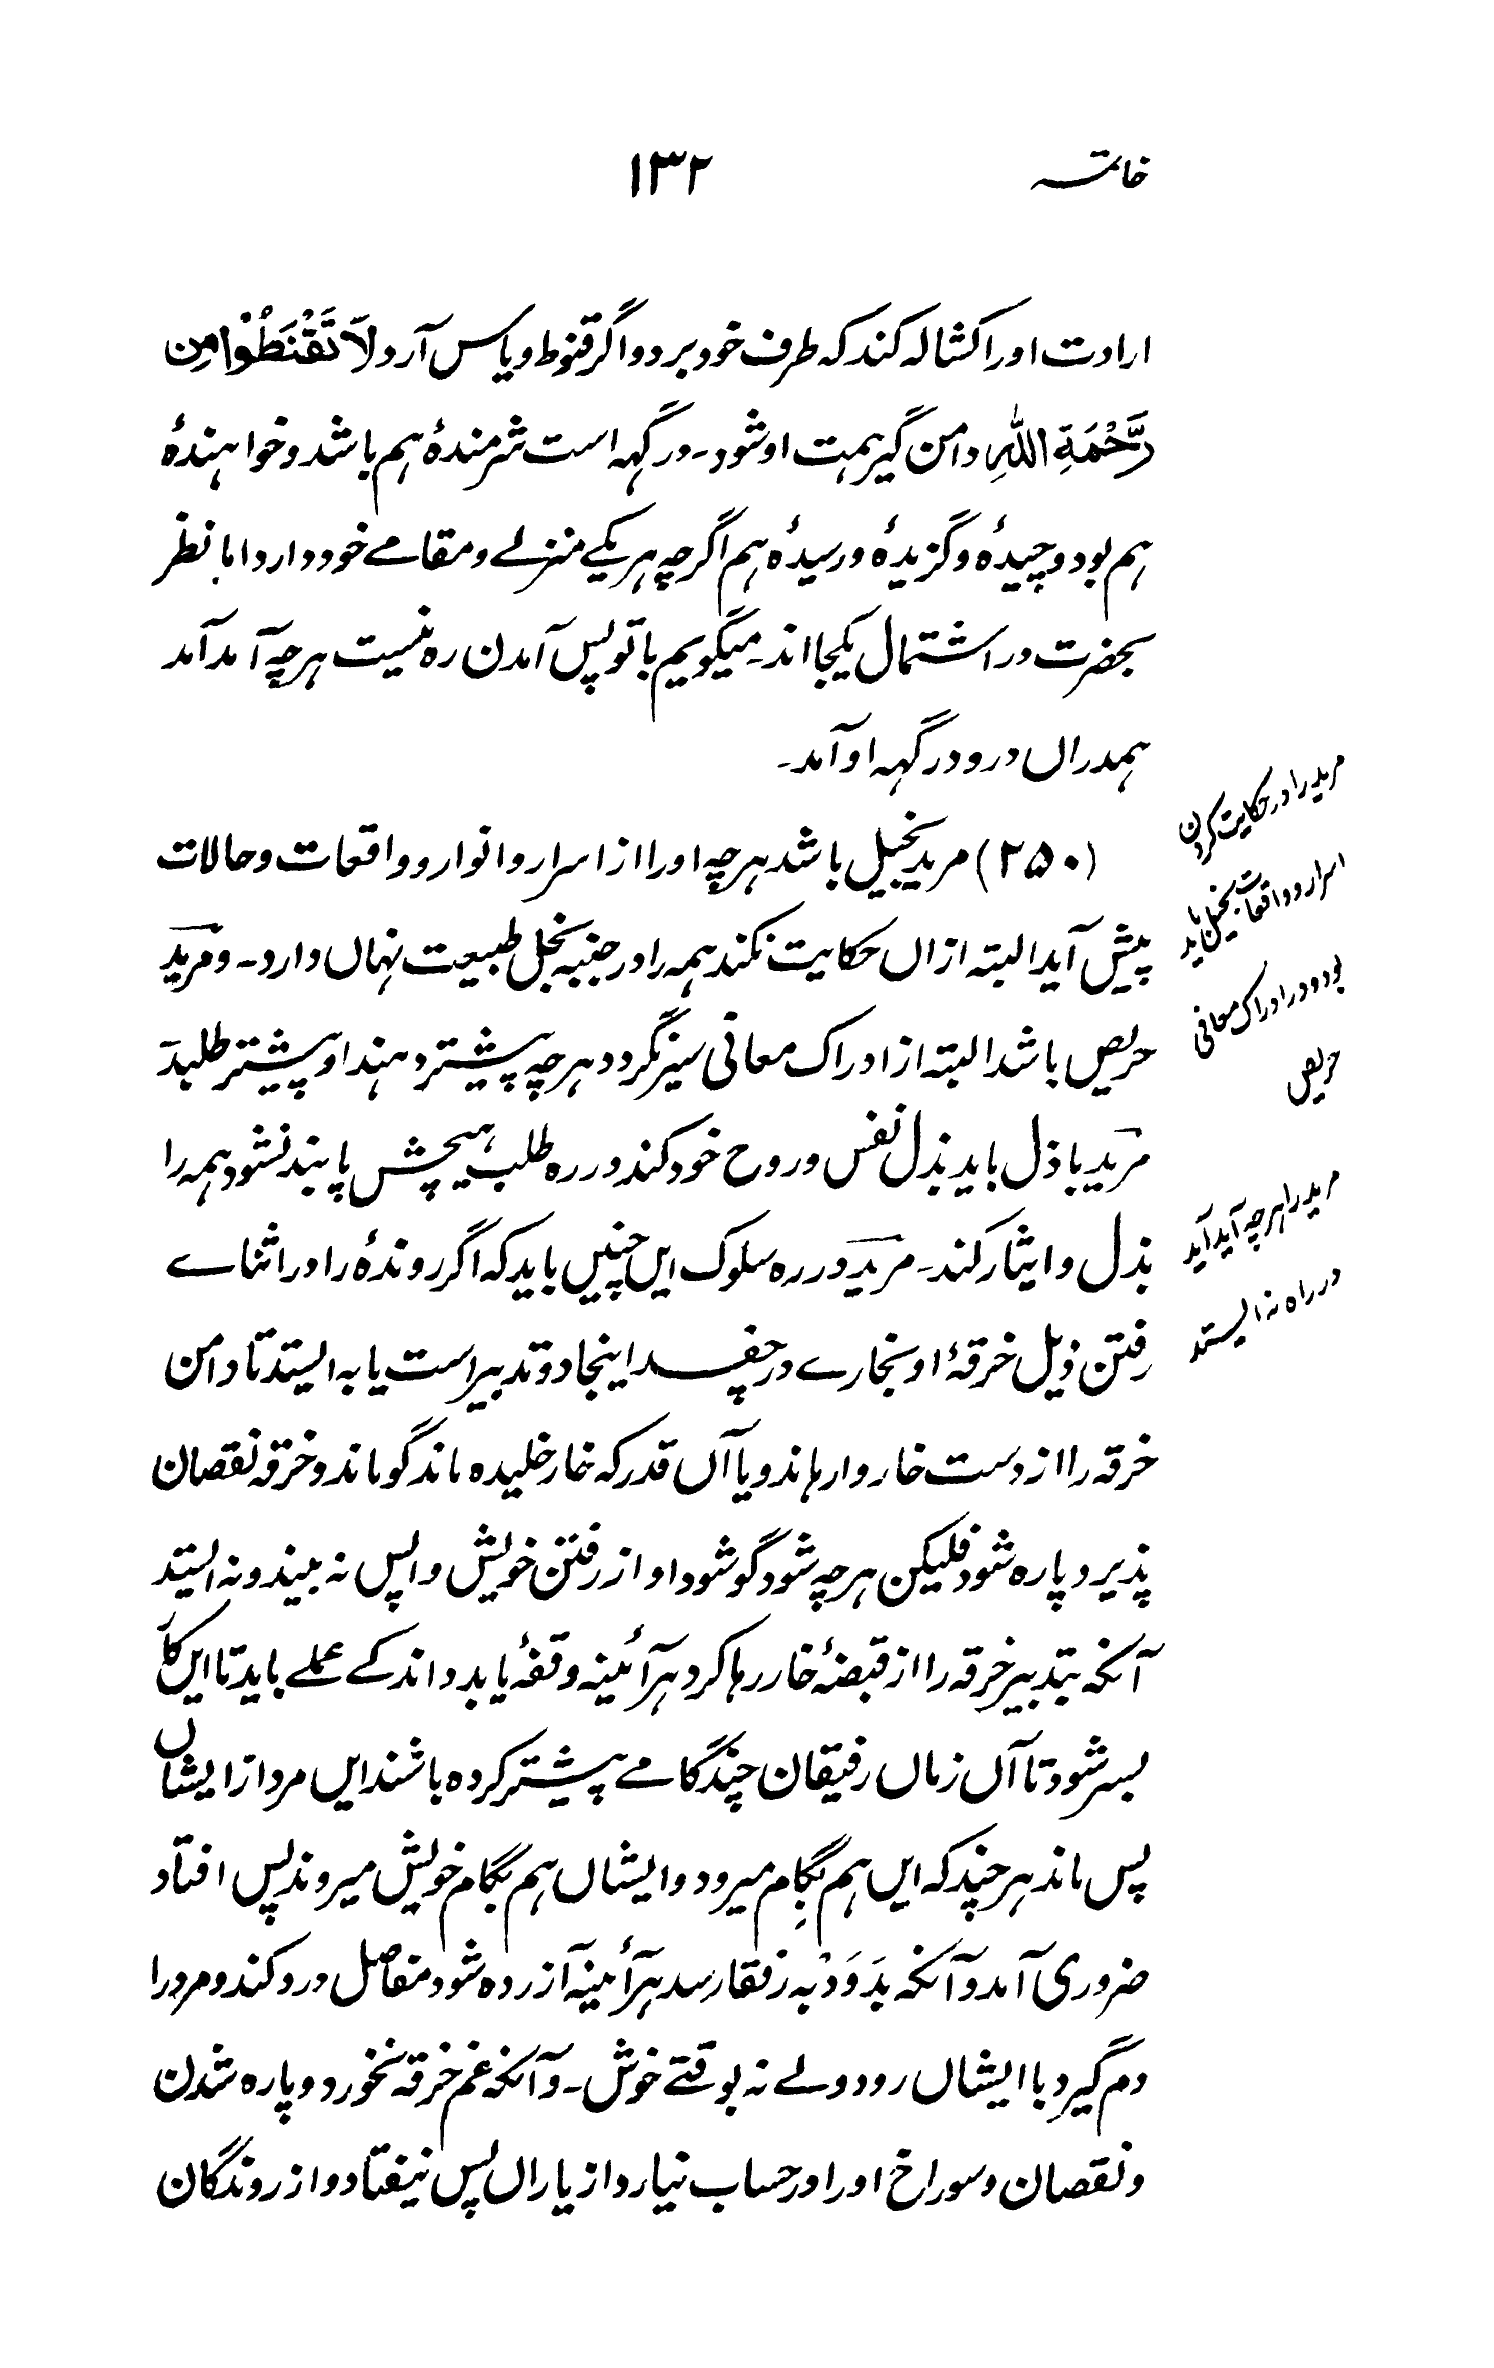 خاتمہ ۱۳۲
ارادت او را کشالہ کند کہ طرف خود برد و اگر قنوط ویاس آرد لَا تَقْنَطُوْا مِن
رَّحْمَةِ اللّٰهِ دامن گیر ہمت او شود۔ درگہہ است شرمندۂ ہم باشد و خواہندۂ
ہم بود و چیدۂ و گزیدۂ و رسیدۂ ہم اگرچہ ہر یکے منزلے و مقامے خود دارد اما بانظر
بحضرت در اشتمال یکجا اند۔ میگویم با تو پس آمدن رہ نیست ہرچہ آمد آمد
ہمدراں در و درگہہ او آمد۔
(۲۵۰) مرید بخیل باشد ہرچہ او را از اسرار و انوار و واقعات و حالات
پیش آید البتہ ازاں حکایت نکند ہمہ را در جنبہ بخل طبیعت نہاں دارد۔ و مرید
حریص باشد البتہ از ادراک معانی سیر نگردد ہرچہ پیشتر دہند او پیشتر طلبد
مرید باذل باید بذل نفس و روح خود کند و در رہ طلب ہیچش پابند نشود ہمہ را
بذل و ایثار کند۔ مرید در رہ سلوک ایں چنیں باید کہ اگر روندۂ را در اثناے
رفتن ذیل خرقۂ او بخارے در چفسد اینجا دو تدبیر است یا بہ ایستد تا دامن
خرقہ را از دست خار وا رہاند و یا آں قدر کہ خار خلیدہ ماند گو ماند و خرقہ نقصان
پذیرد پارہ شود فلیکن ہرچہ شود گو شود او از رفتن خویش واپس نہ بیند و نہ ایستد
آنکہ بتدبیر خرقہ را از قبضۂ خار رہا کرد ہر آئینہ وقفۂ یابد و اندکے عملے باید تا ایں کار
بسر شود تا آں زماں رفیقان چند گامے پیشتر کردہ باشند ایں مرد از ایشاں
پس ماند ہرچند کہ ایں ہم بگام میرود و ایشاں ہم بگام خویش میروند پس افتاد
ضروری آمد و آنکہ بدَوَدْ بہ رفقا رسد ہر آئینہ آزردہ شود مفاصل درد کند و مرد را
دم گیرد با ایشاں رود ولے نہ بوقتے خوش۔ و آنکہ غم خرقہ نخورد و پارہ شدن
و نقصان و سوراخ او را در حساب نیارد از یاراں پس نیفتاد و از روندگان
مرید را در حکایت کردن
اسرار و واقعات بخیل باید
بود و در ادراک معانی
حریص
مرید را ہرچہ آید آید
در راہ نہ ایستد